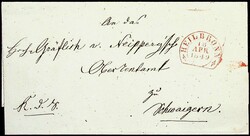 An das
Hochgräflich v. Neipperg'sche
Oberrentamt
zu
Schwaigern
HEILBRONN
APR
1849